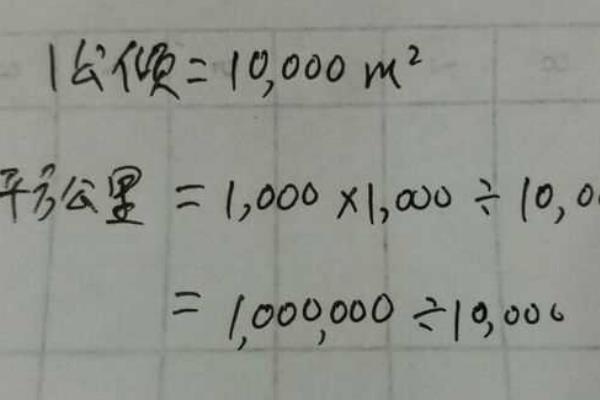 1公倾=10,000 m²
平方公里 =1,000×1,000÷10,0
=1,000,000÷10,000